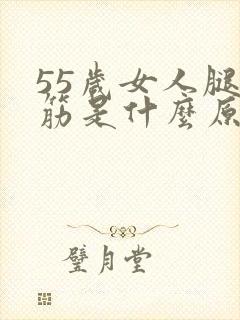 55歲女人腿
筋是什麼原
璧月堂